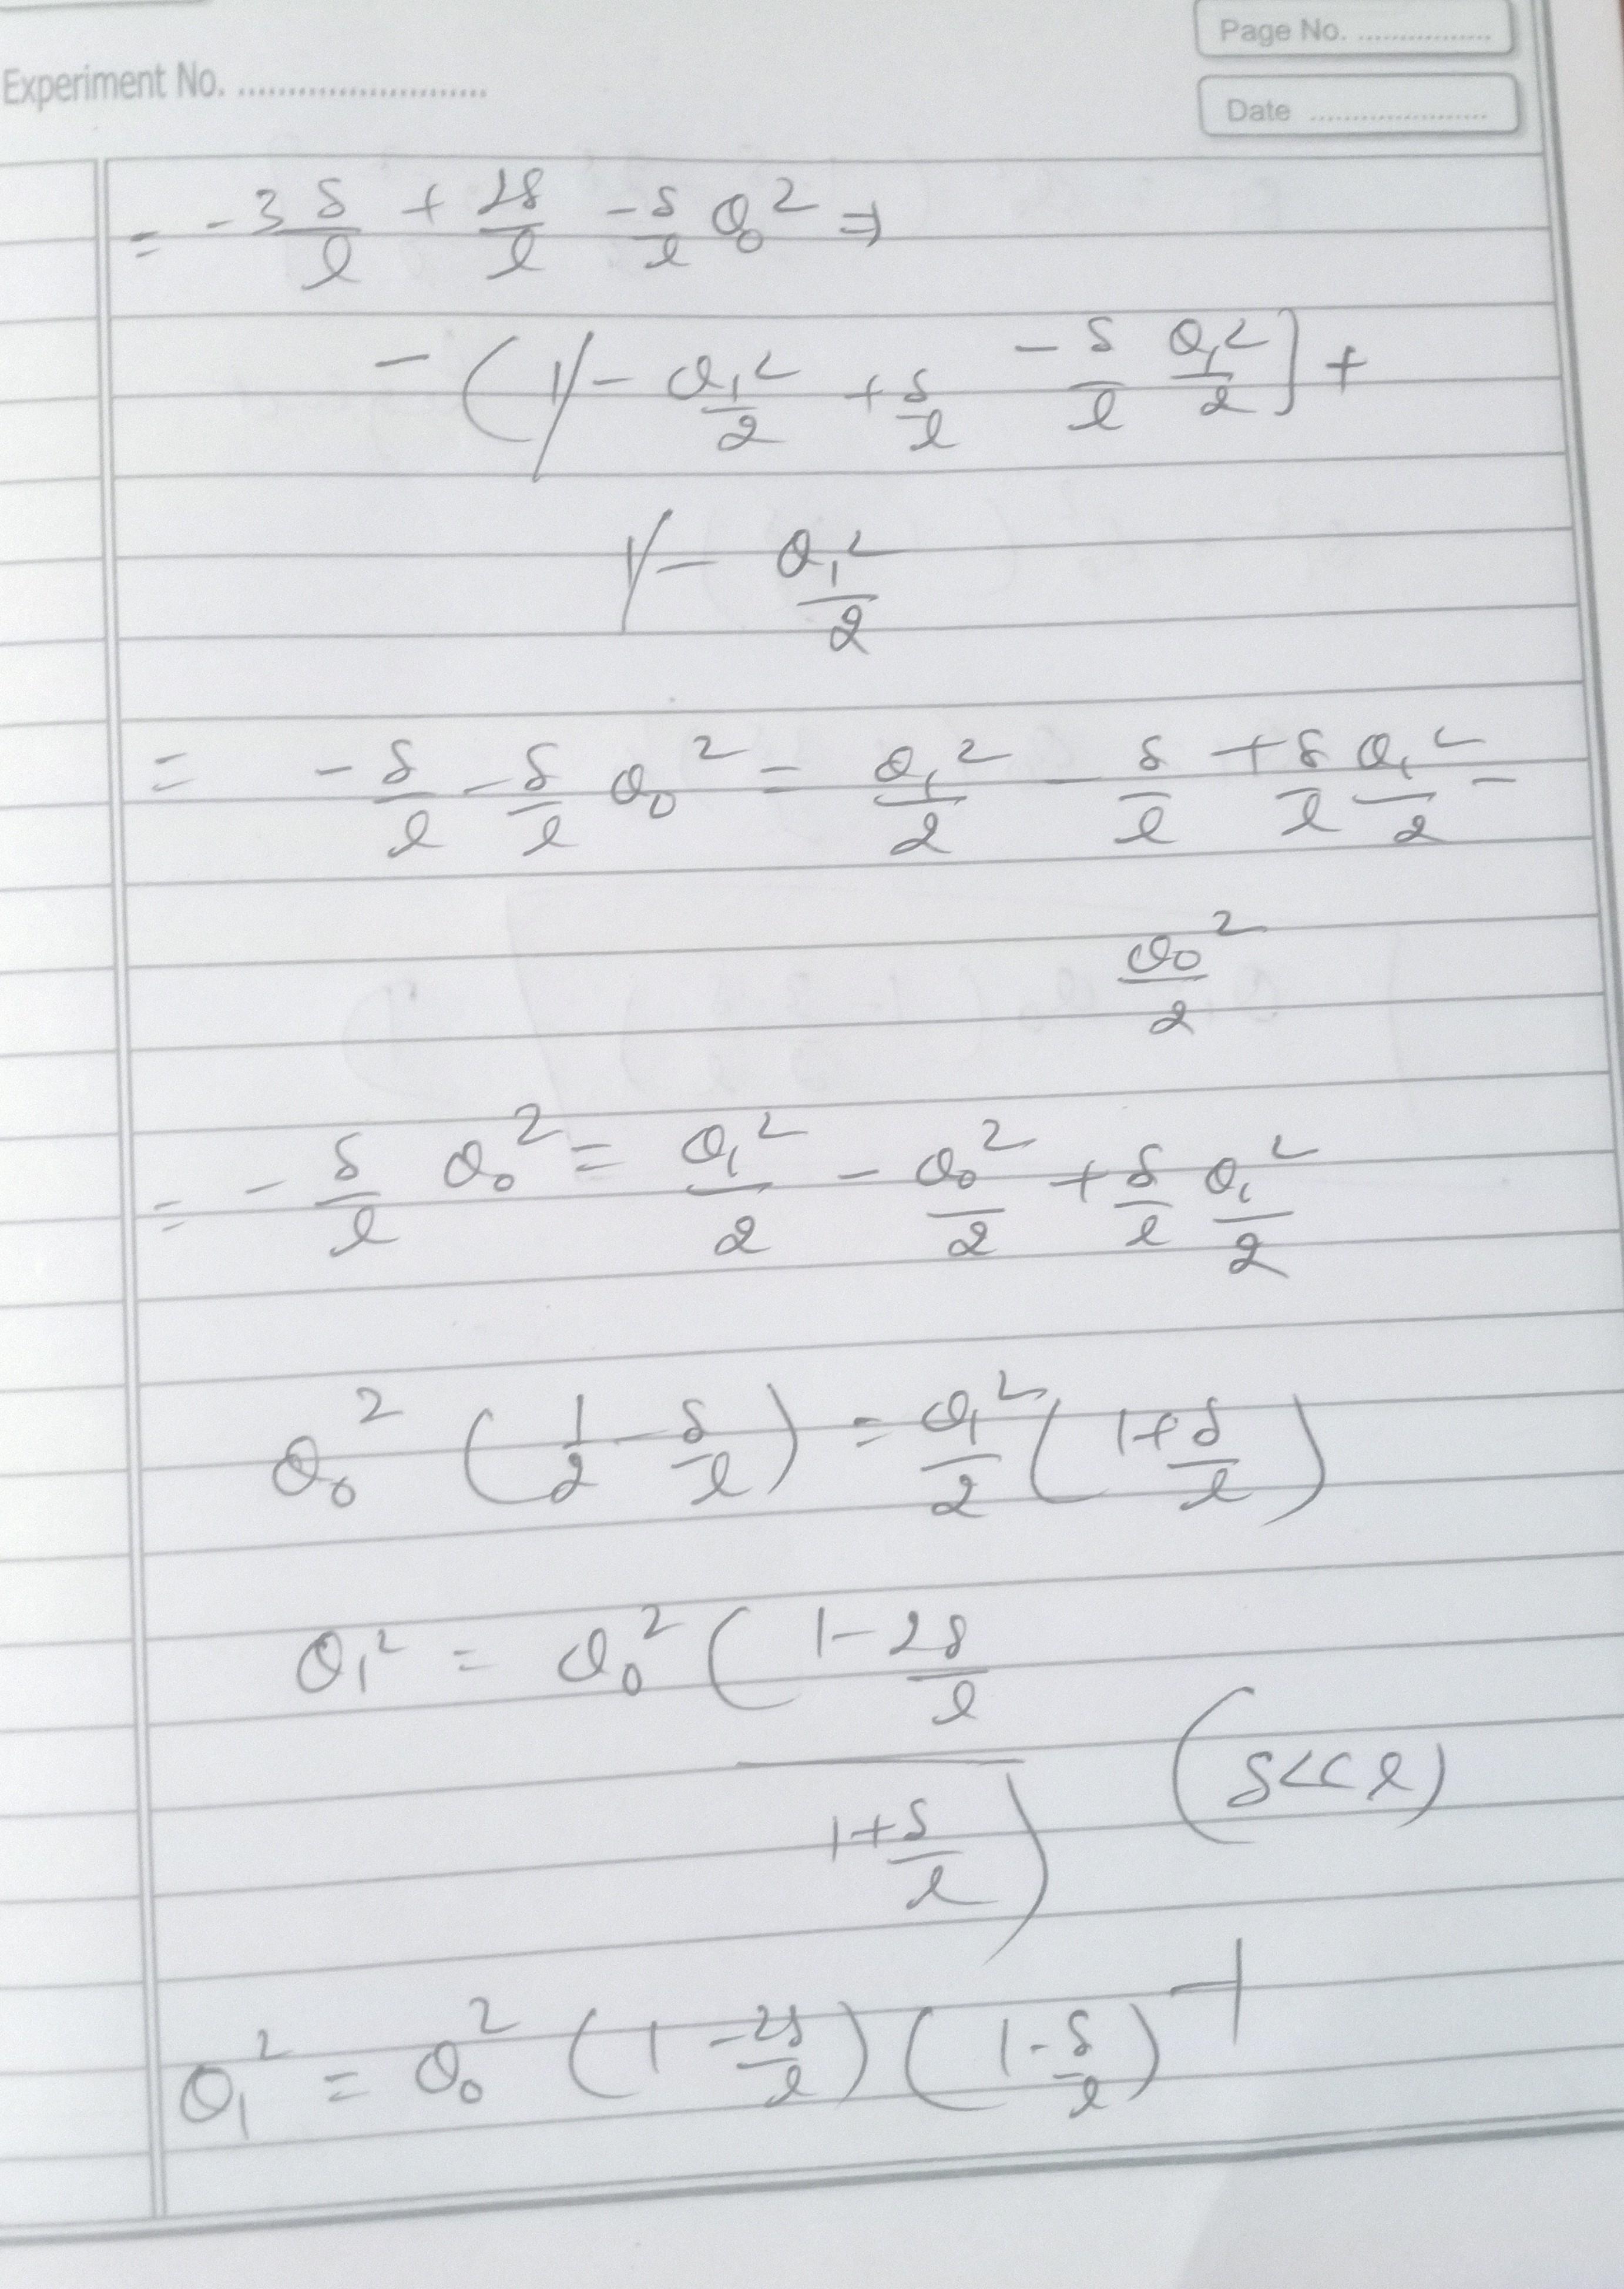 Page No. ................
Experiment No. ..........................
Date ......................
= -3 δ/l + 2δ/l - δ/l θ₀² ⇒
- (1 - θ₁²/2 + δ/l - δ/l θ₁²/2] +
1 - θ₁²/2
= - δ/l - δ/l θ₀² = θ₁²/2 - δ/l + δ/l θ₁²/2 -
θ₀²/2
= - δ/l θ₀² = θ₁²/2 - θ₀²/2 + δ/l θ₁²/2
θ₀² (1/2 - δ/l) = θ₁²/2 (1 + δ/l)
θ₁² = θ₀² (1 - 2δ/l
(δ << l)
1 + δ/l)
θ₁² = θ₀² (1 - 2δ/l) (1 - δ/l)⁻¹